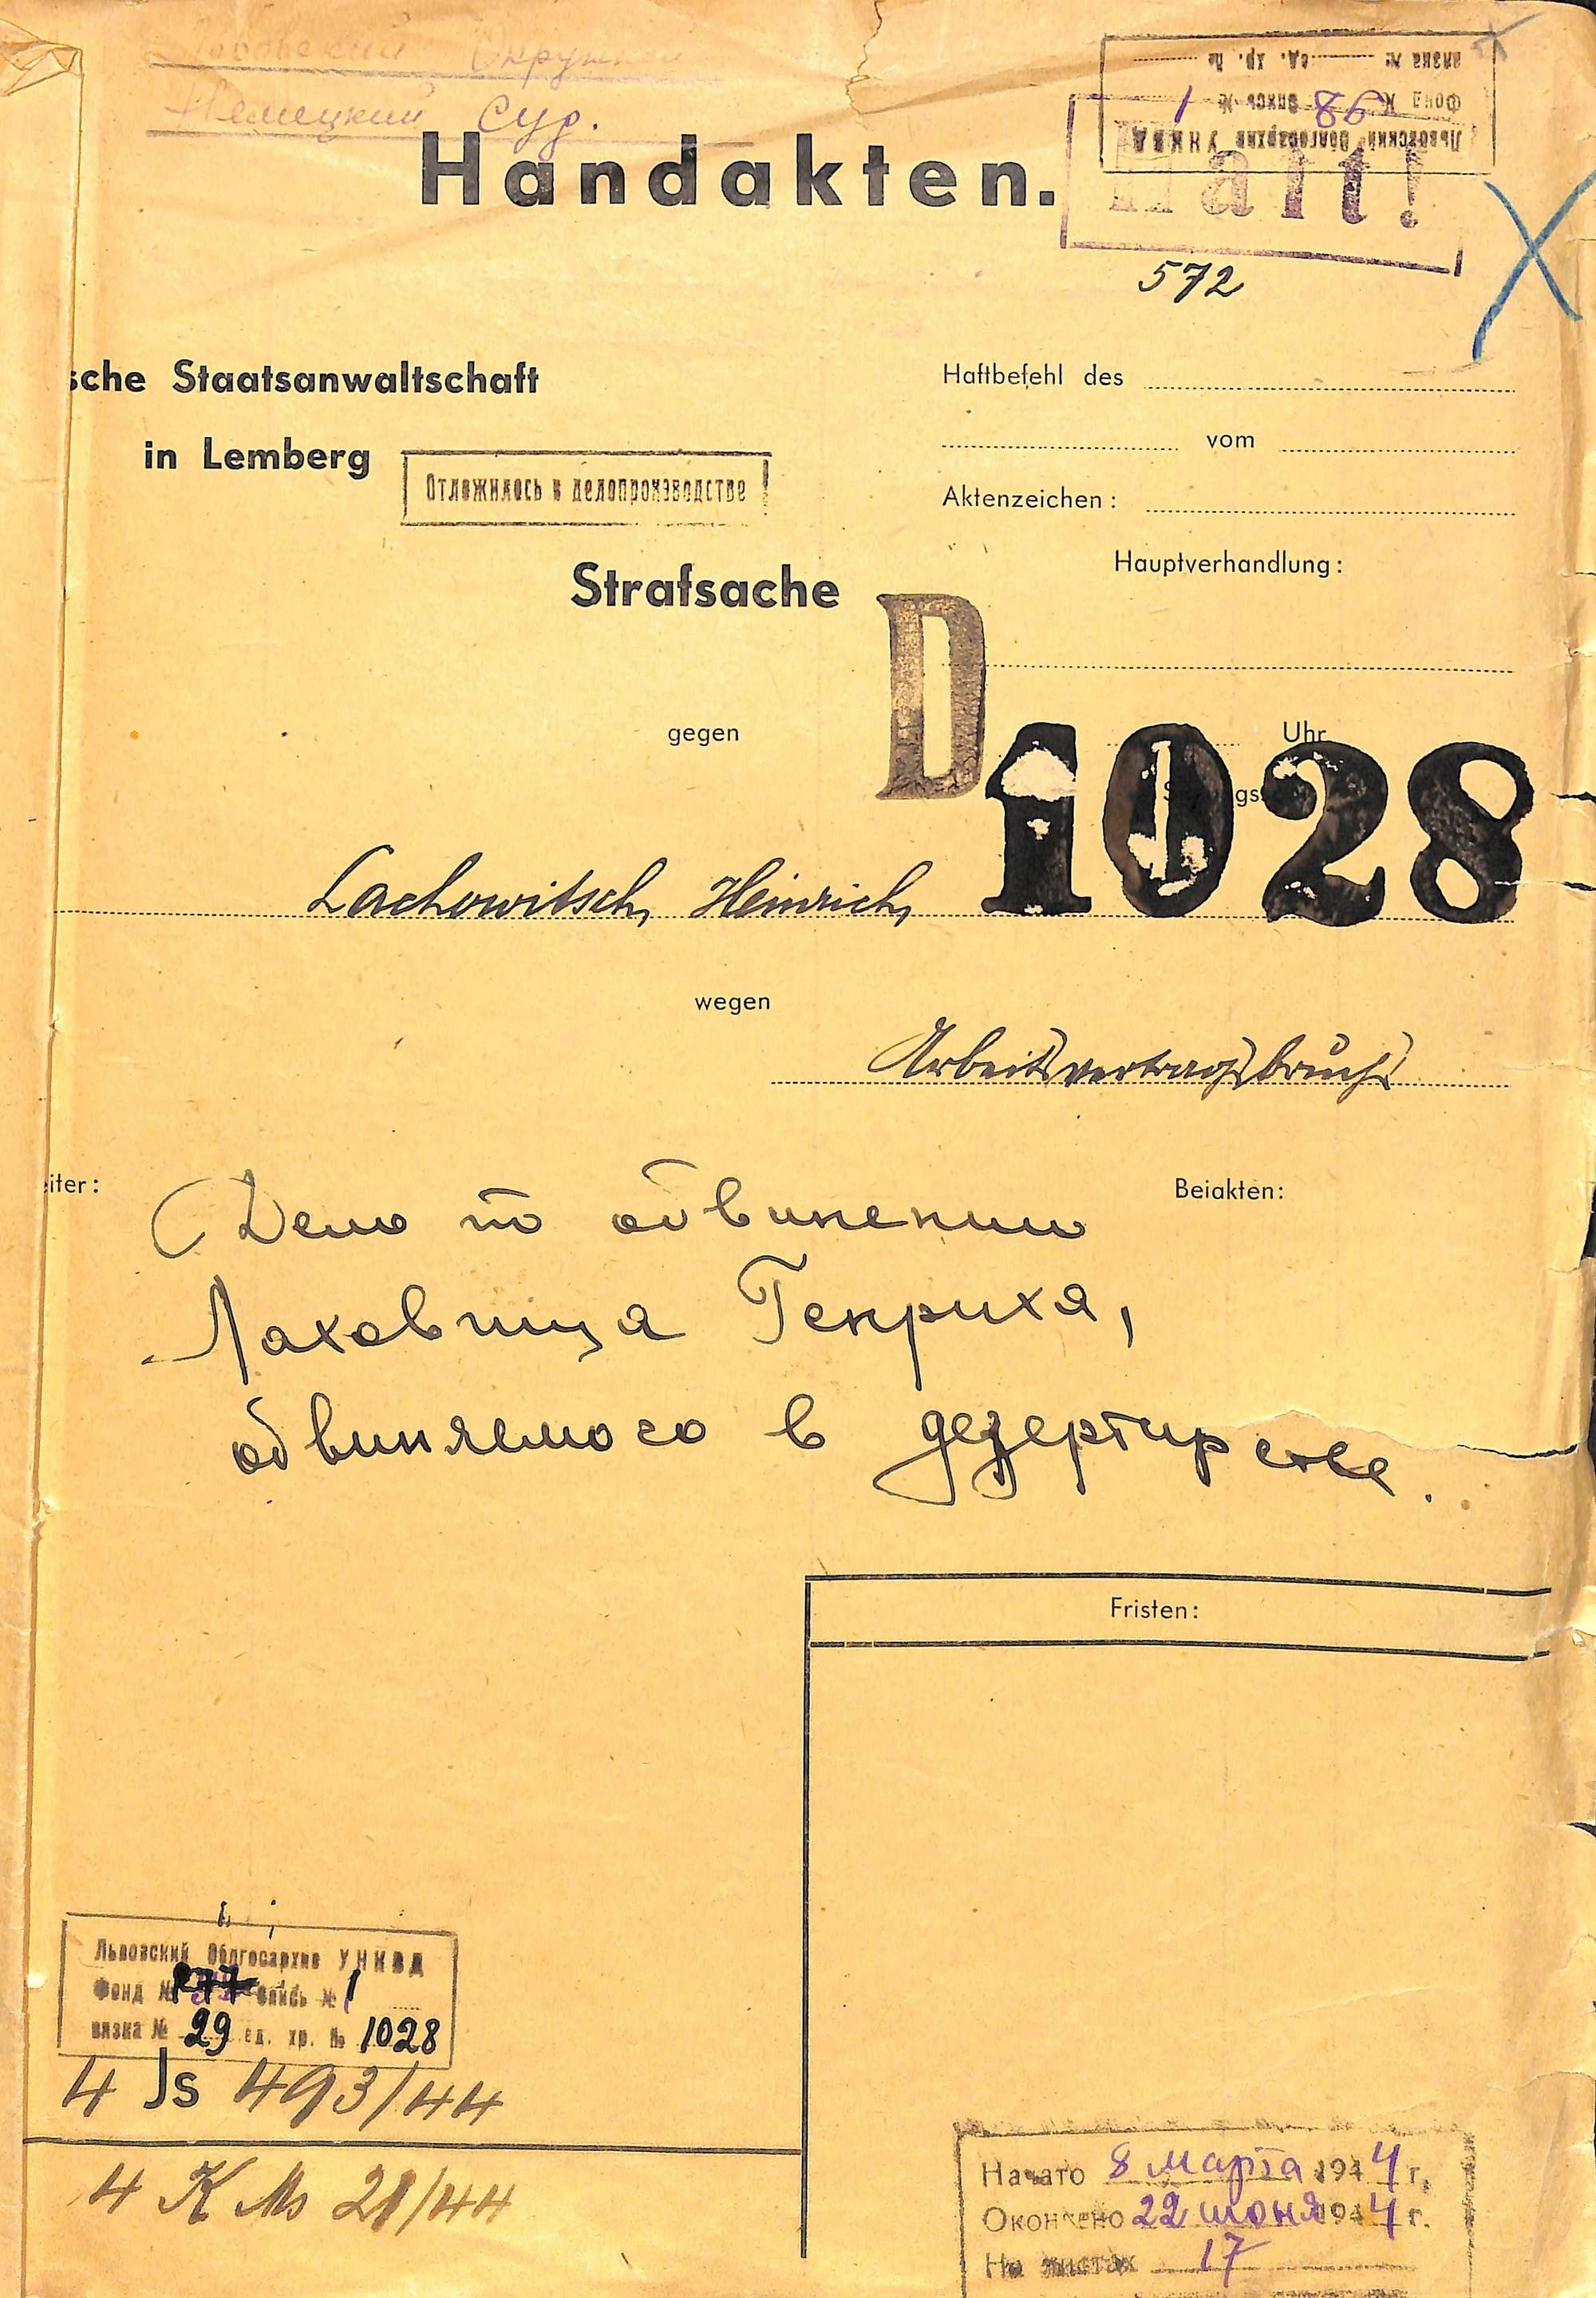 Львовский Окружной
Немецкий Суд.
Handakten.
Львовский Облгосархив УНКВД
Фонд № 98 опись № 1
вязка № ед. хр. №
Haft!
572
sche Staatsanwaltschaft
in Lemberg
Отложилось в делопроизводстве
Haftbefehl des
vom
Aktenzeichen:
Hauptverhandlung:
Strafsache
gegen
Uhr
D 1028
Lachowitsch, Heinrich,
wegen
Arbeitsvertragsbruchs
eiter:
Beiakten:
Дело по обвинению
Лаховица Генриха,
обвиняемого в дезертирстве.
Fristen:
Львовский Облгосархив УНКВД
Фонд № опись № 1
вязка № 29 ед. хр. № 1028
4 Js 493/44
4 K Ms 21/44
Начато 8 марта 1944 г.
Окончено 22 июня 1944 г.
На листах 17